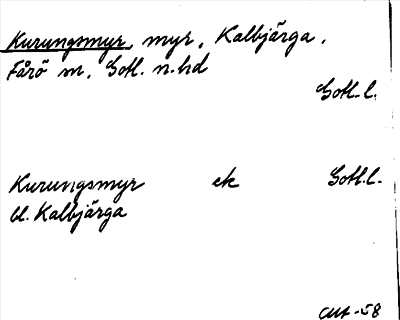 Kurungsmyr, myr, Kalbjärga,
Fårö sn, Gotl. n. hd
Gotl. l.
Kurungsmyr ek Gotl. l.
bl. Kalbjärga